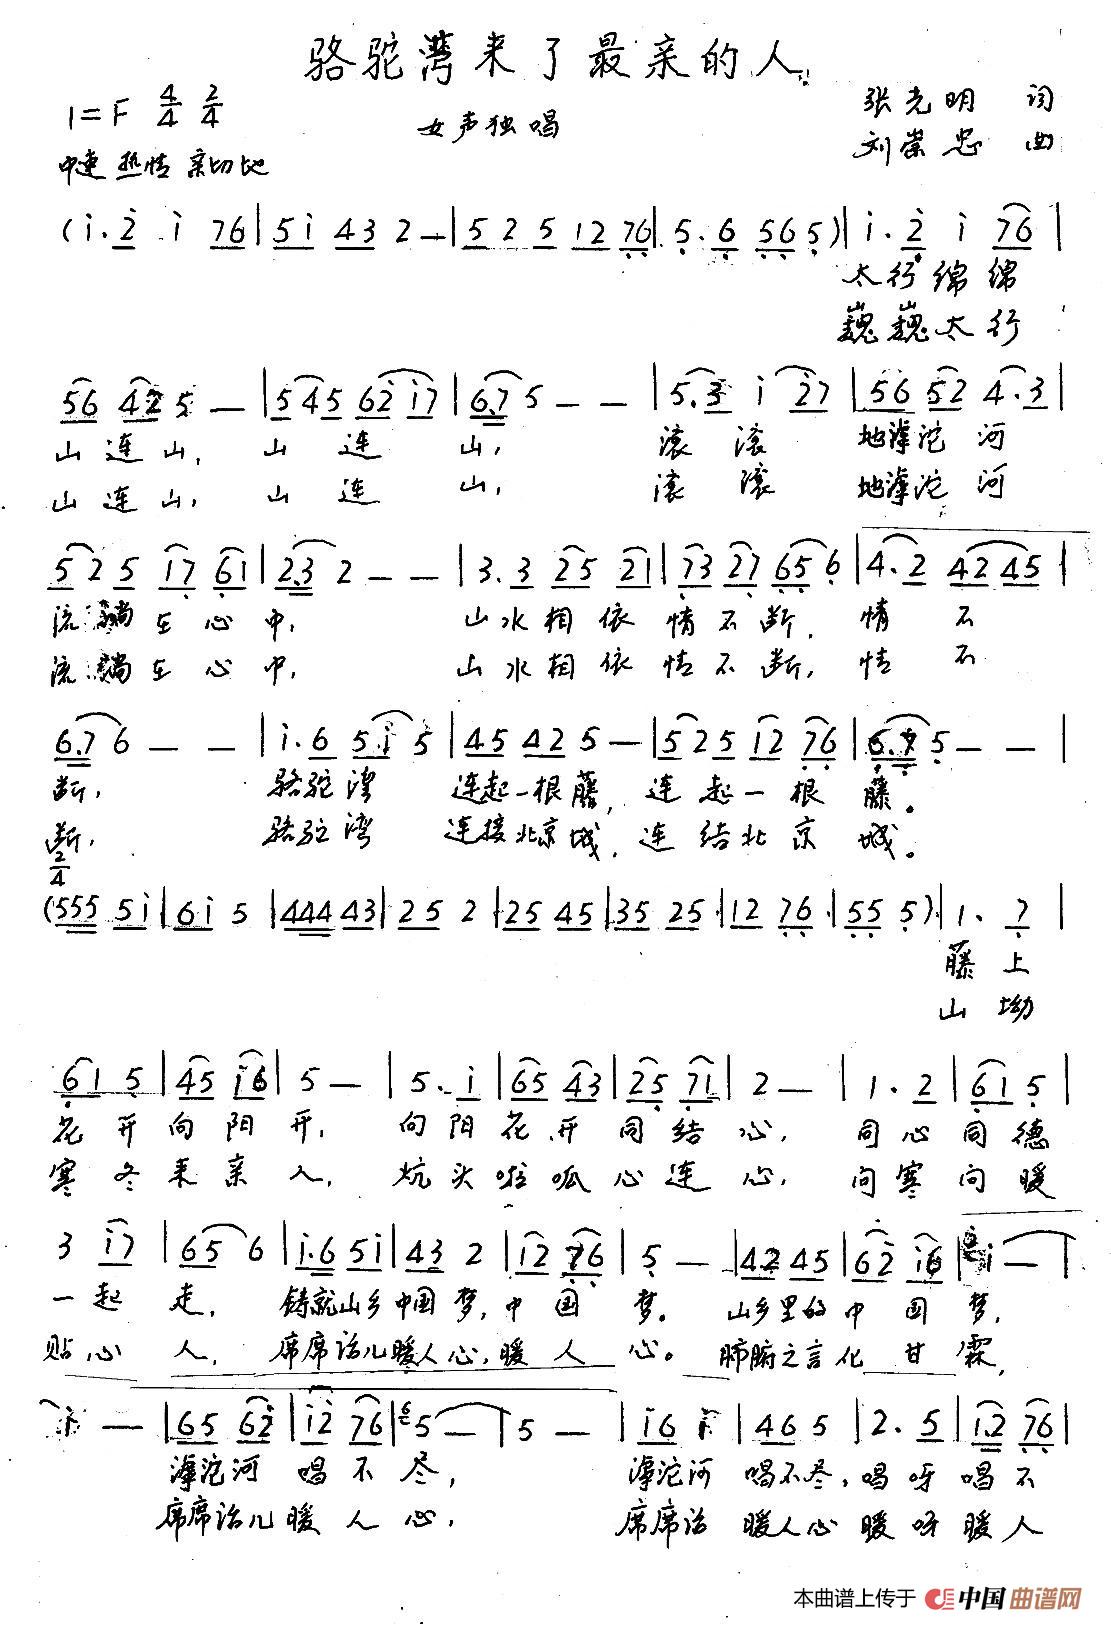 骆驼湾来了最亲的人
1=F 4/4 2/4
女声独唱
张光明 词
刘崇忠 曲
中速 热情 亲切地
(i. 2 i 76 | 5i 43 2 — | 525 12 76 | 5. 6 56 5) | i. 2 i 76 |
太行绵绵
巍巍太行
56 42 5 — | 545 62 i7 | 6.7 5 — — | 5.3 i 27 | 56 52 4.3 |
山连山, 山连山, 滚滚地滹沱河
山连山, 山连山, 滚滚地滹沱河
525 i7 61 | 2.3 2 — — | 3.3 25 21 | 73 27 65 6 | 4.2 42 45 |
流淌在心中, 山水相依情不断, 情不
流淌在心中, 山水相依情不断, 情不
6.7 6 — — | i.6 5i 5 | 45 42 5 — | 525 12 76 | 6.7 5 — — |
断, 骆驼湾 连起一根藤, 连起一根藤。
断, 骆驼湾 连接北京城, 连结北京城。
2/4
(555 5i | 6i 5 | 444 43 | 25 2 | 25 45 | 35 25 | 12 76 | 55 5) | 1. 7 |
藤上
山坳
61 5 | 45 i6 | 5 — | 5. i | 65 43 | 25 71 | 2 — | 1. 2 | 61 5 |
花开向阳开, 向阳花开同结心, 同心同德
寒冬来亲人, 炕头啦呱心连心, 问寒问暖
3 i7 | 65 6 | i.6 5i | 43 2 | 12 76 | 5 — | 42 45 | 62 i6 | i — |
一起走, 铸就山乡中国梦, 中国梦。 山乡里的中国梦,
贴心人, 席席话儿暖人心, 暖人心。 肺腑之言化甘霖,
i — | 65 62 | i2 76 | 5 — | 5 — | i6 i | 46 5 | 2. 5 | 12 76 |
滹沱河唱不尽, 滹沱河唱不尽, 唱呀唱不
席席话儿暖人心, 席席话暖人心暖呀暖人
本曲谱上传于 中国曲谱网